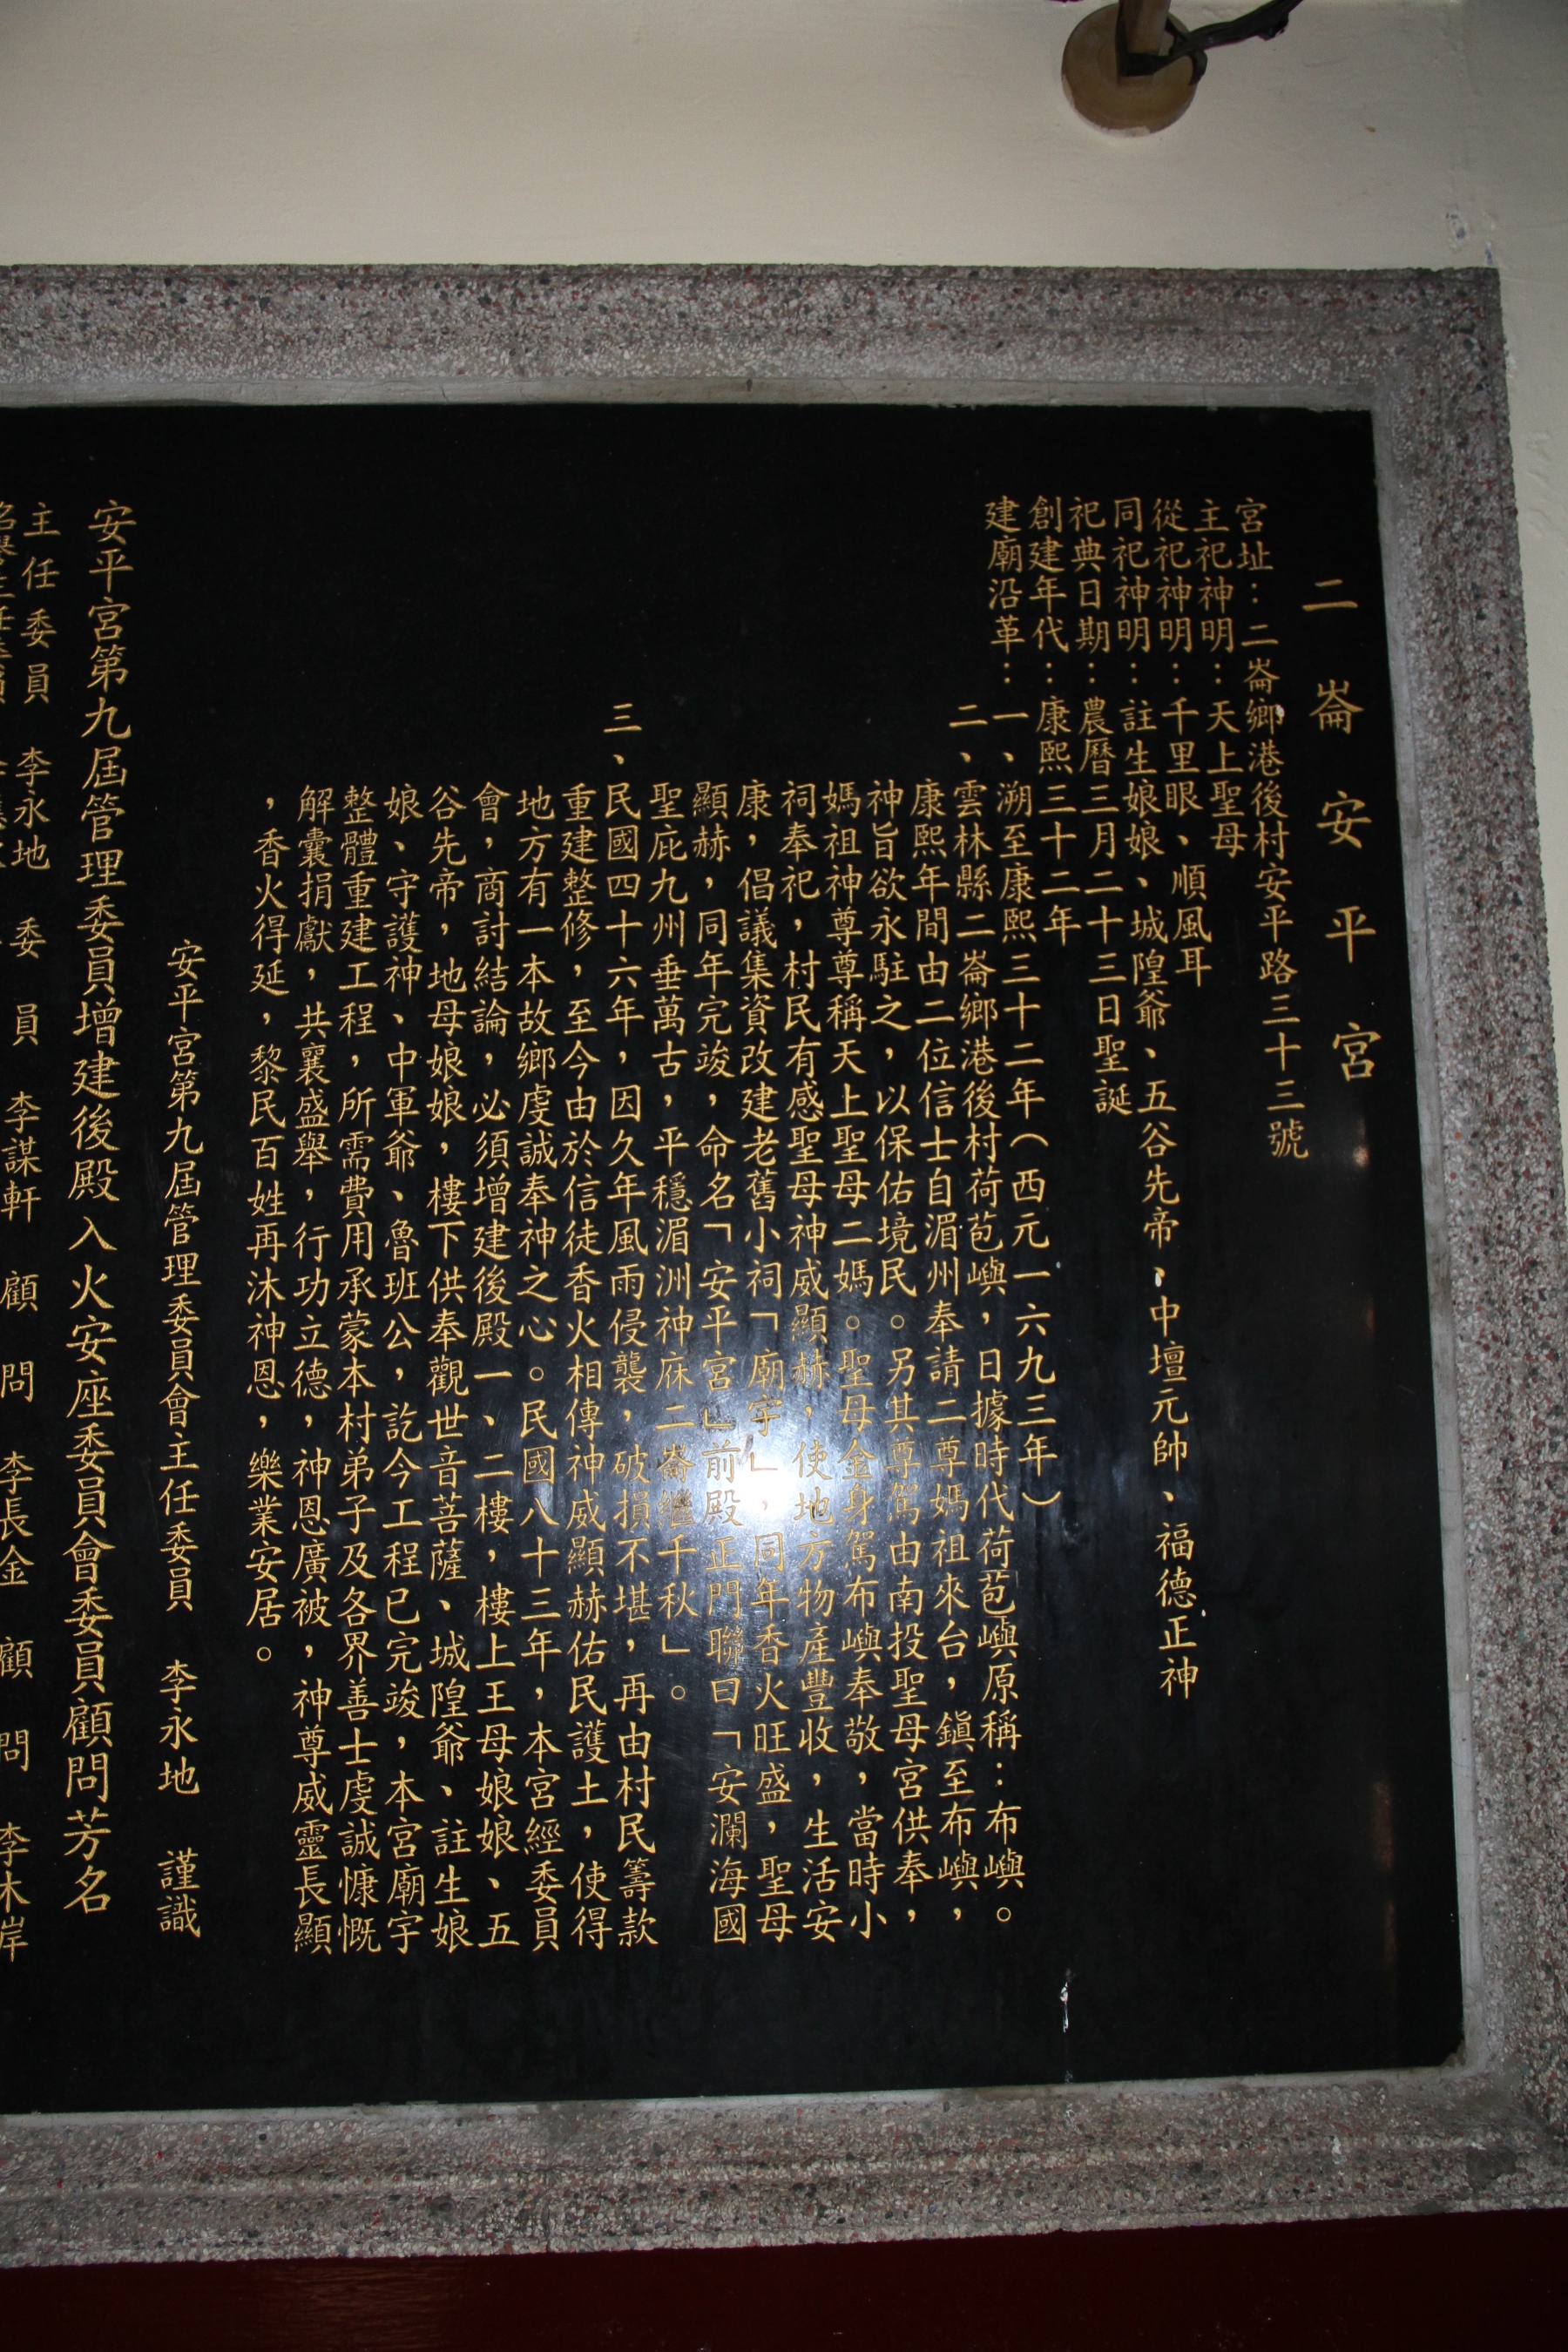 二崙安平宮
宮址：二崙鄉港後村安平路三十三號
主祀神明：天上聖母
從祀神明：千里眼、順風耳
同祀神明：註生娘娘、城隍爺、五谷先帝、中壇元帥、福德正神
祀典日期：農曆三月二十三日聖誕
創建年代：康熙三十二年
建廟沿革：一、溯至康熙三十二年（西元一六九三年）
二、雲林縣二崙鄉港後村荷苞嶼，日據時代荷苞嶼原稱：布嶼。
康熙年間由二位信士自湄州奉請二尊媽祖來台，鎮至布嶼，
神旨欲永駐之，以保佑境民。另其尊駕由南投聖母宮供奉，
媽祖神尊尊稱天上聖母二媽。聖母金身駕布嶼奉敬，當時小
祠奉祀，村民有感聖母神威顯赫，使地方物產豐收，生活安
康，倡議集資改建老舊小祠「廟宇」，同年香火旺盛，聖母
顯赫，同年完竣，命名「安平宮」前殿正門聯曰「安瀾海國
聖庇九州垂萬古，平穩湄洲神庥二崙繼千秋」。
三、民國四十六年，因久年風雨侵襲，破損不堪，再由村民籌款
重建整修，至今由於信徒香火相傳神威顯赫佑民護土，使得
地方有一本故鄉虔誠奉神之心。民國八十三年，本宮經委員
會，商討結論，必須增建後殿一、二樓，樓上王母娘娘、五
谷先帝，地母娘娘，樓下供奉觀世音菩薩、城隍爺、註生娘
娘、守護神、中軍爺、魯班公，訖今工程已完竣，本宮廟宇
整體重建工程，所需費用承蒙本村弟子及各界善士虔誠慷慨
解囊捐獻，共襄盛舉，行功立德，神恩廣被，神尊威靈長顯
，香火得延，黎民百姓再沐神恩，樂業安居。
安平宮第九屆管理委員會主任委員　李永地　謹識
安平宮第九屆管理委員增建後殿入火安座委員會委員顧問芳名
主任委員　李永地　委員　李謀軒　顧問　李長金　顧問　李木岸